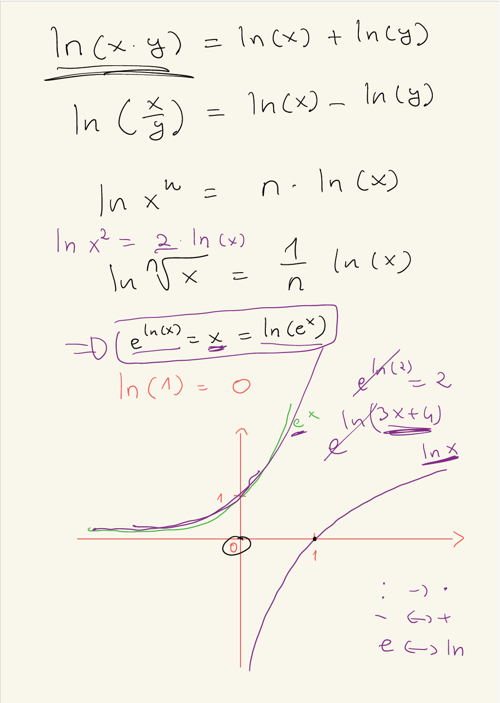 ln(x·y) = ln(x) + ln(y)
ln(x/y) = ln(x) - ln(y)
ln xⁿ = n · ln(x)
ln x² = 2 · ln(x)
ln ⁿ√x = 1/n ln(x)
⇒ e^ln(x) = x = ln(eˣ)
ln(1) = 0
e^ln(2) = 2
e^ln(3x+4)
eˣ
ln x
1
0
1
: → ·
- ↔ +
e ↔ ln